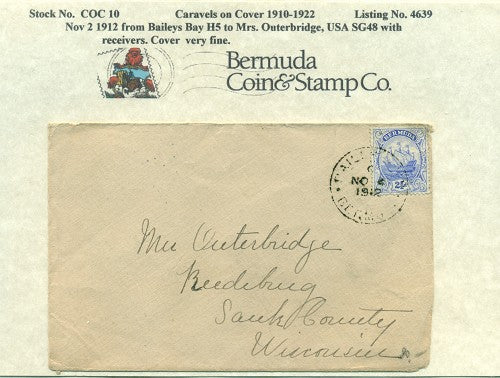 Stock No. COC 10 Caravels on Cover 1910-1922 Listing No. 4639
Nov 2 1912 from Baileys Bay H5 to Mrs. Outerbridge, USA SG48 with
receivers. Cover very fine.
Bermuda
Coin&StampCo.
BERMUDA
NO
1912
Mrs Outerbridge
Reedsburg
Sauk County
Wisconsin